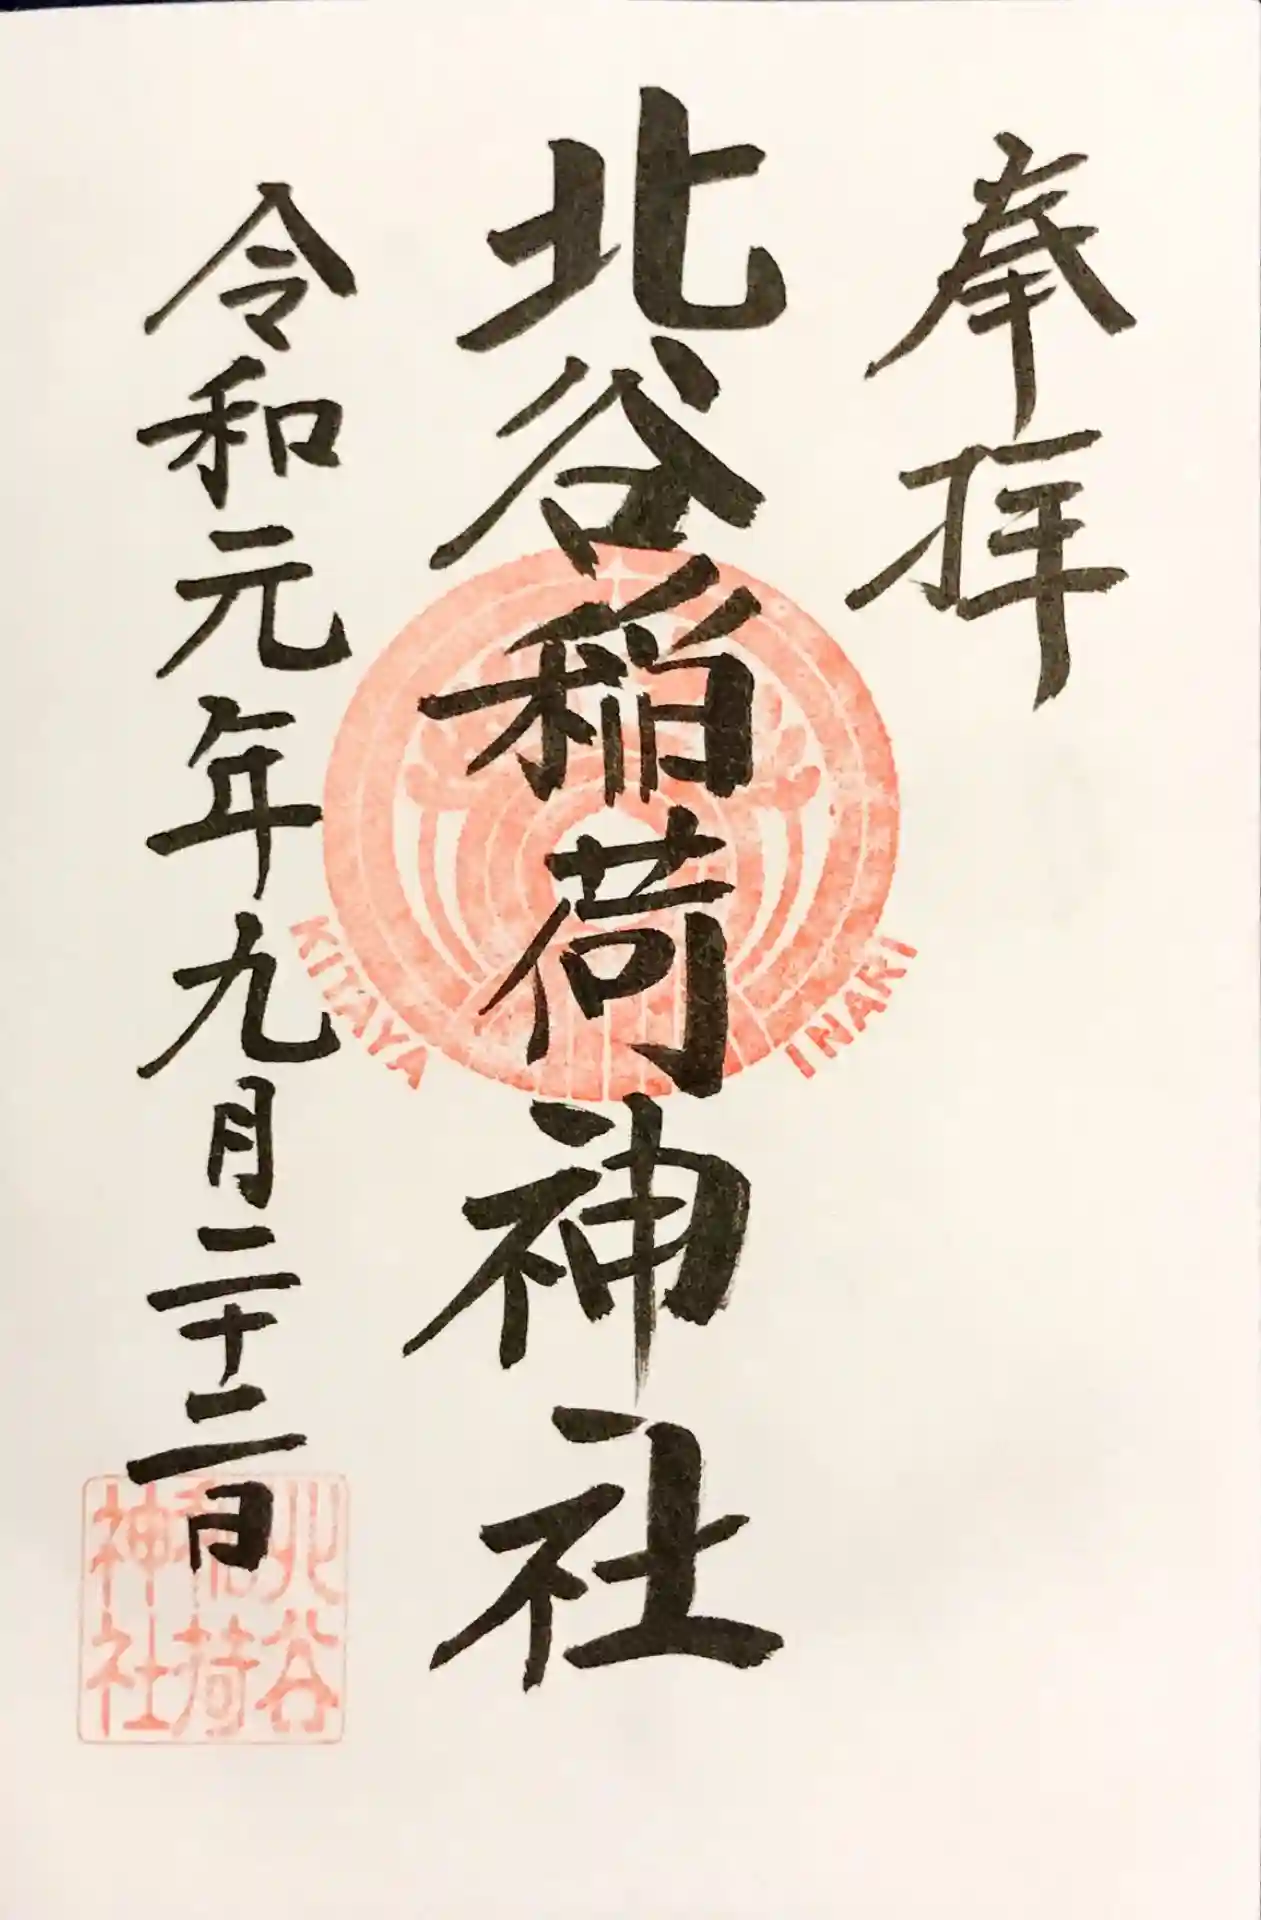 奉拝
北谷稲荷神社
令和元年九月二十二日
KITAYA INARI
北谷
稲荷
神社